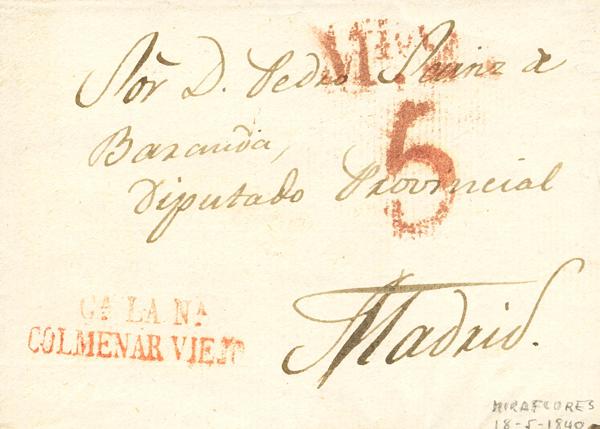 Sor D. Pedro Sainz de
Baranda,
Diputado Provincial
5
Madrid.
Ca LA Na
COLMENAR VIEJO
MIRAFLORES
18-5-1840